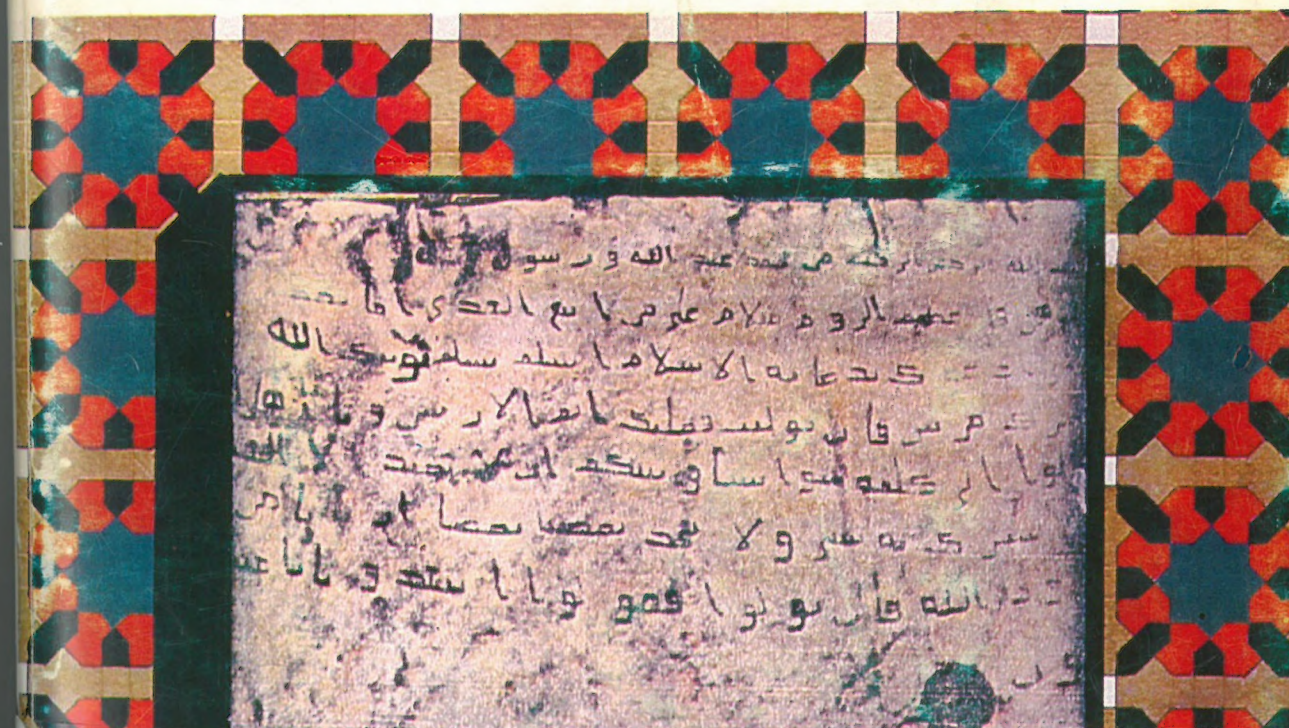 الله الرحمن الرحيم من محمد عبد الله و رسو له
هرقل عظيم الروم سلام على من اتبع الهدى اما بعد
بدعاية الاسلام اسلم تسلم يوتك الله
مرتين فان توليت فعليك اثم الاريسين ويا اهل
تعالوا الى كلمة سوا بيننا وبينكم ان لا نعبد الا الله
نشرك به شيئا ولا يتخذ بعضنا بعضا اربابا من
دون الله فان تولوا فقولوا اشهدوا بانا